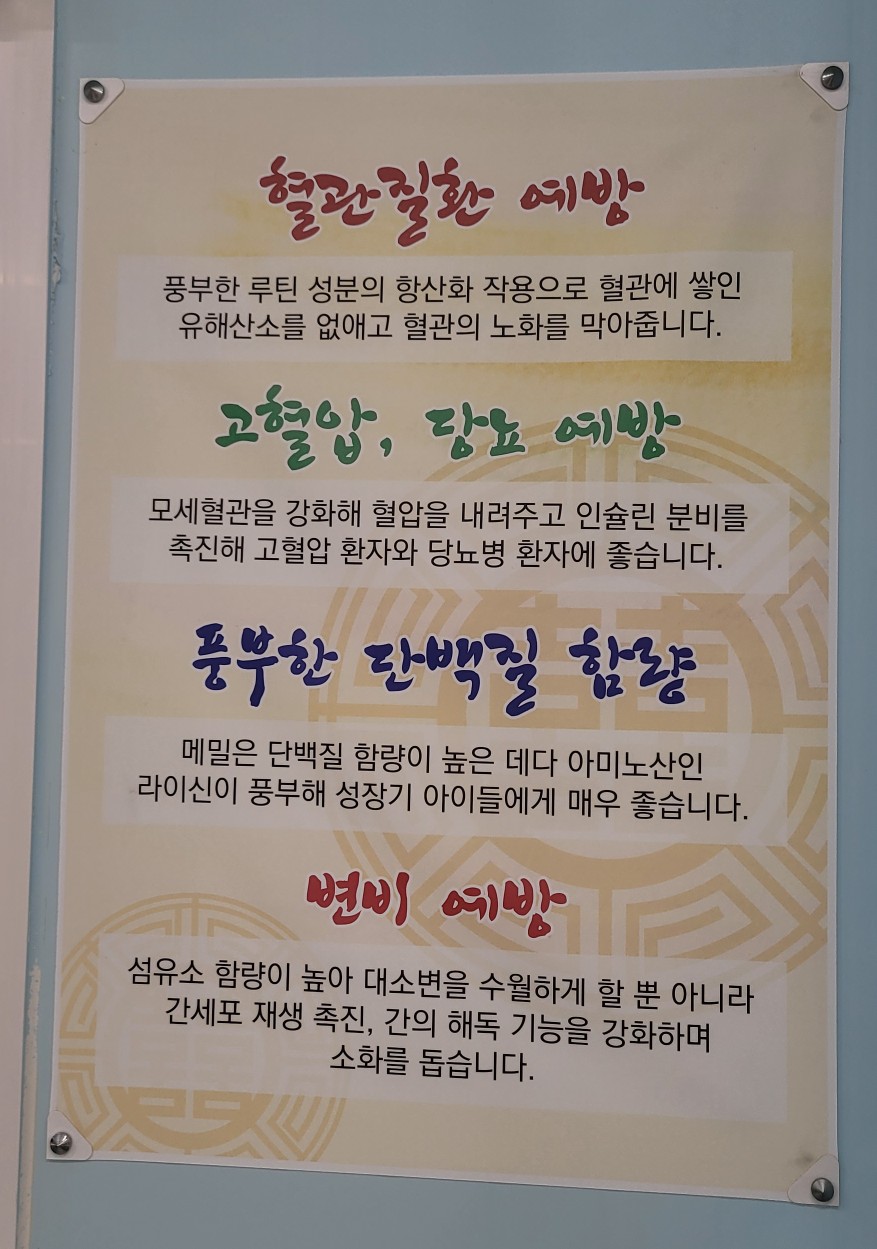 혈관질환 예방
풍부한 루틴 성분의 항산화 작용으로 혈관에 쌓인
유해산소를 없애고 혈관의 노화를 막아줍니다.
고혈압, 당뇨 예방
모세혈관을 강화해 혈압을 내려주고 인슐린 분비를
촉진해 고혈압 환자와 당뇨병 환자에 좋습니다.
풍부한 단백질 함량
메밀은 단백질 함량이 높은 데다 아미노산인
라이신이 풍부해 성장기 아이들에게 매우 좋습니다.
변비 예방
섬유소 함량이 높아 대소변을 수월하게 할 뿐 아니라
간세포 재생 촉진, 간의 해독 기능을 강화하며
소화를 돕습니다.